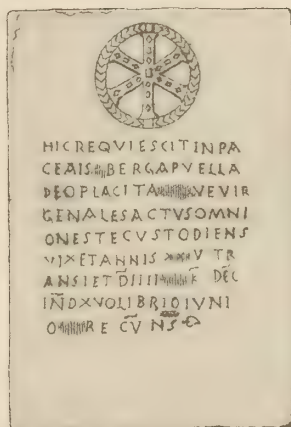 HIC REQVIESCIT IN PA
CE AIS BERGA PVELLA
DEO PLACITA QVE VIR
GENALES ACTVS OMNI
ONESTE CVSTODIENS
VIXET ANNIS XXXV TR
ANSIET D IIII K DEC
IND XV OLIBRIO IVNI
O RE CV NS